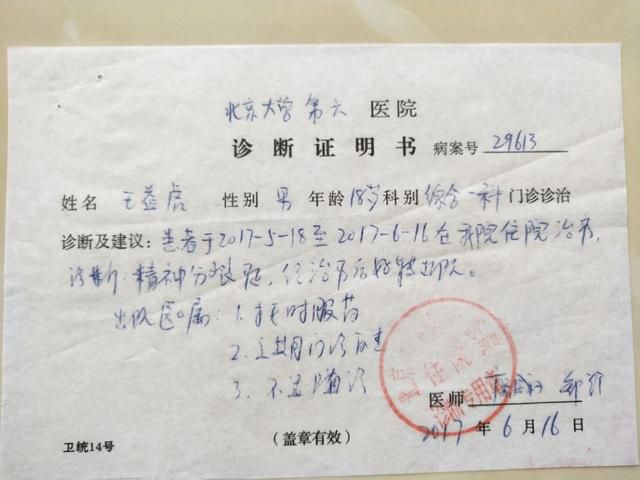 北京大学第六 医院
诊断证明书 病案号 29613
姓名 王益虎 性别 男 年龄 18岁 科别 综合一科 门诊诊治
诊断及建议：患者于2017-5-18至2017-6-16在我院住院治疗，
诊断：精神分裂症，经治疗后好转出院。
出院医嘱：1. 按时服药
2. 定期门诊复查
3. 不适随诊
医师
2017年6月16日
卫统14号 （盖章有效）
北京 医院
住院
诊断专用章